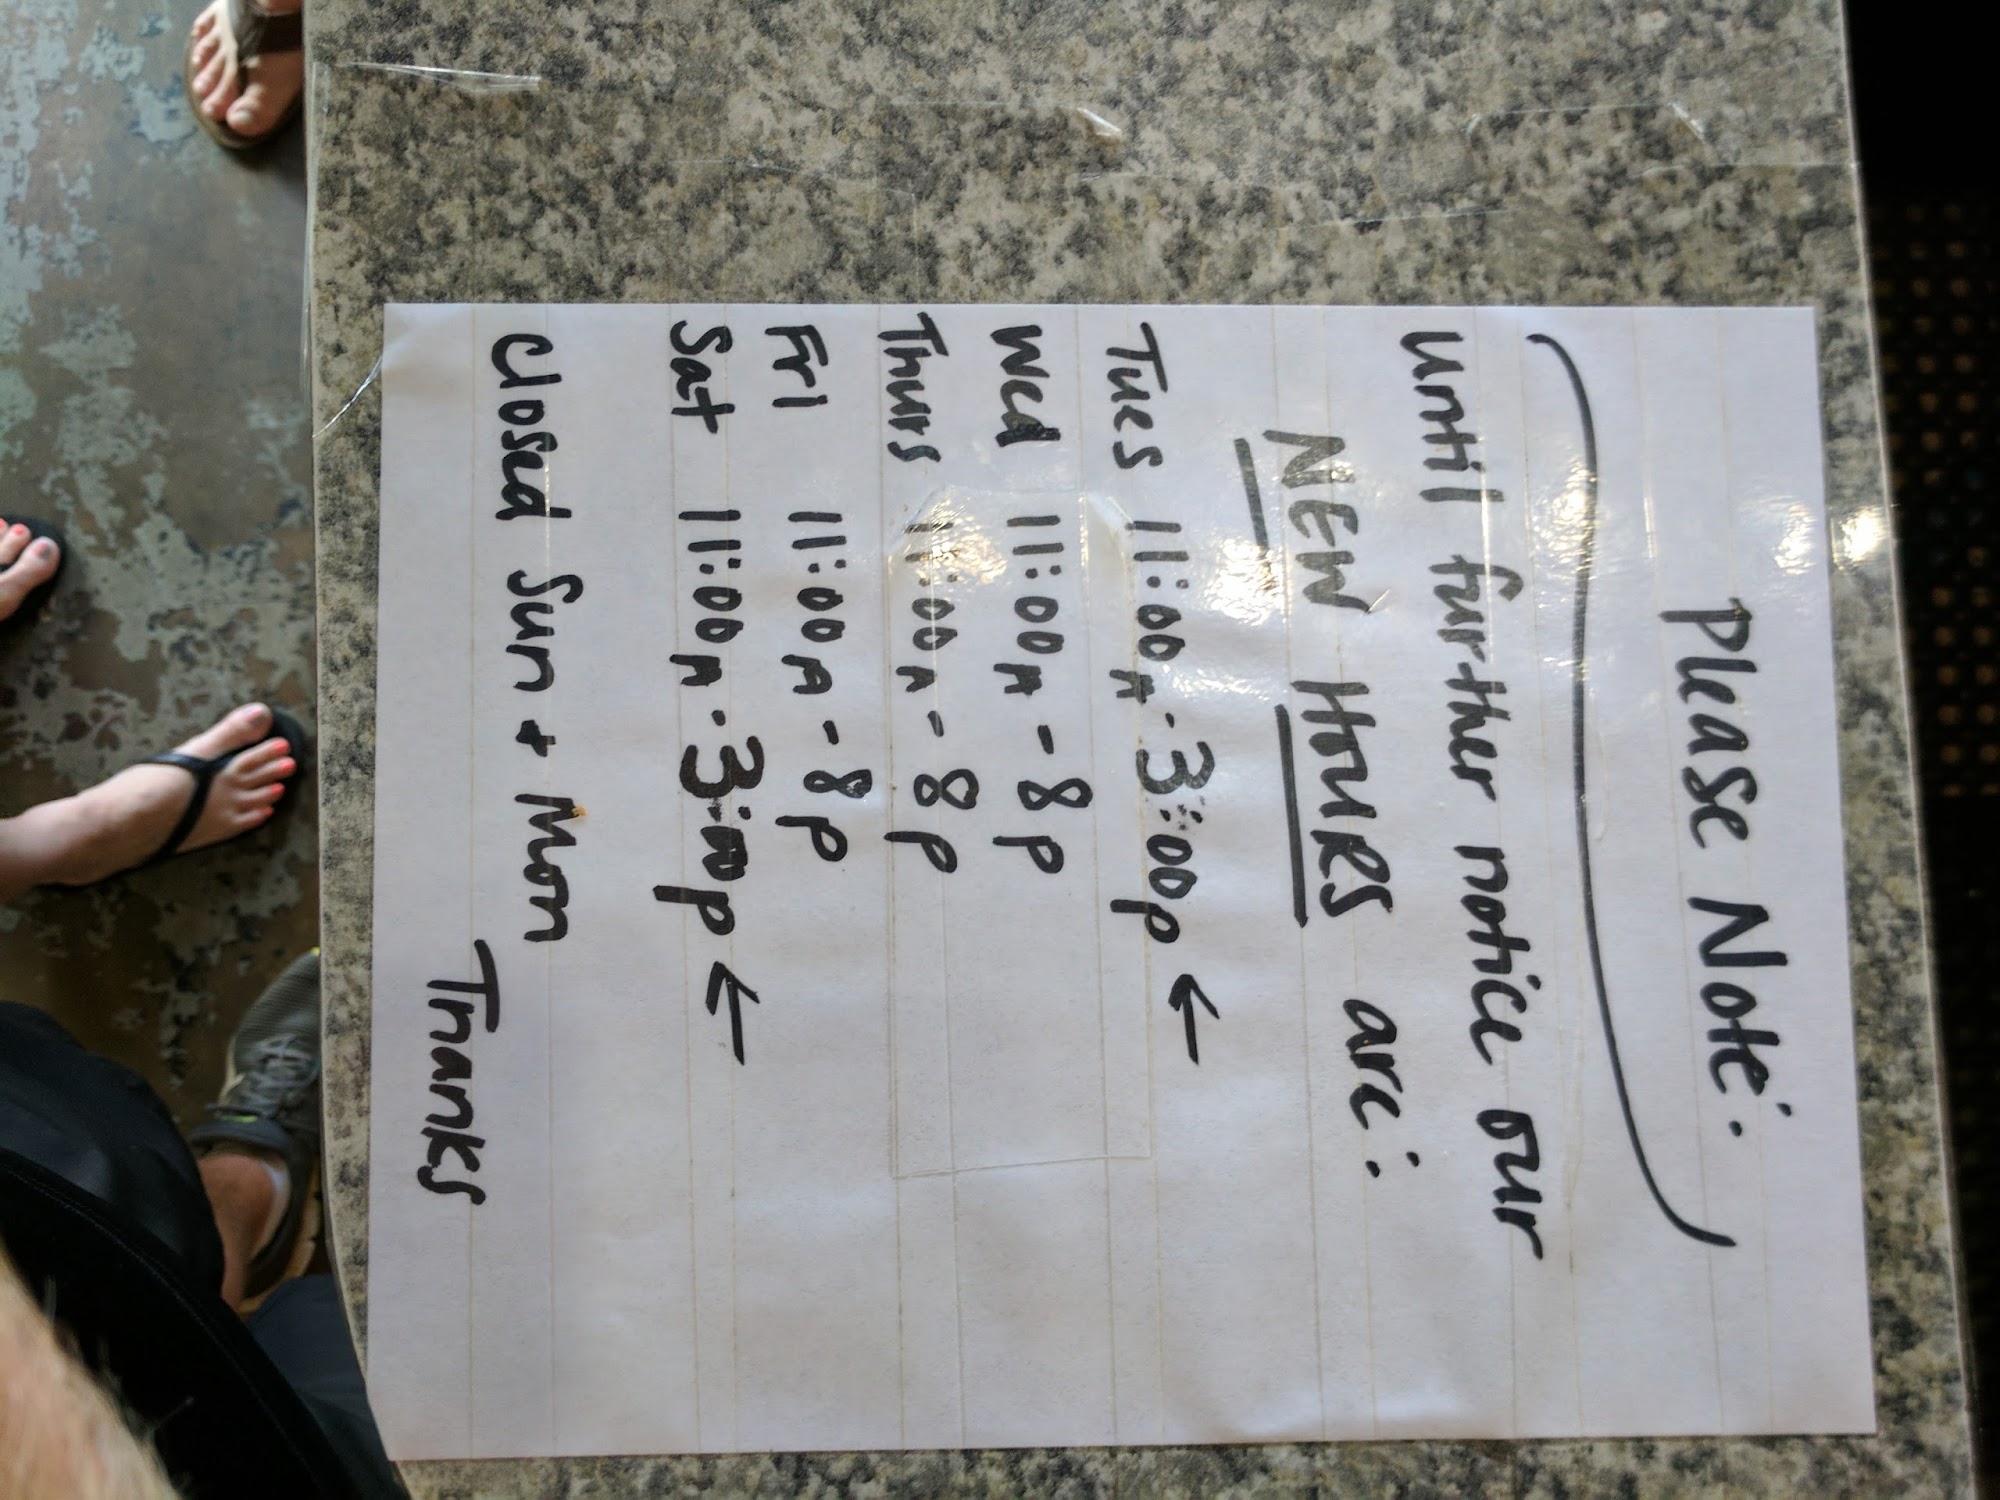 Please Note:
Until further notice our
NEW HOURS are:
Tues 11:00A - 3:00p ←
Wed 11:00A - 8p
Thurs 11:00A - 8p
Fri 11:00A - 8p
Sat 11:00A - 3:00p ←
Closed Sun + Mon
Thanks